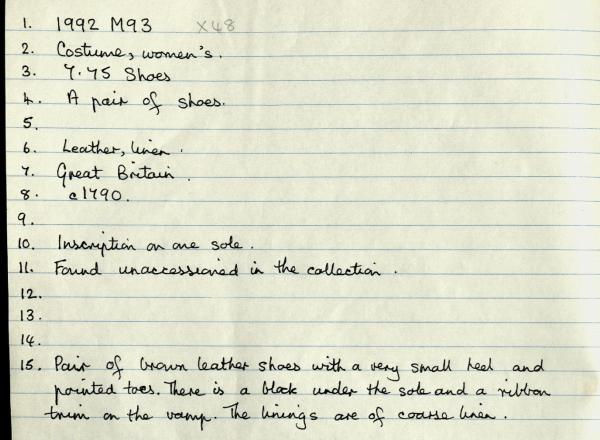 1. 1992 M93 X48
2. Costume, women's.
3. 7.75 Shoes
4. A pair of shoes.
5.
6. Leather, linen.
7. Great Britain.
8. c1790.
9.
10. Inscription on one sole.
11. Found unaccessioned in the collection.
12.
13.
14.
15. Pair of brown leather shoes with a very small heel and
pointed toes. There is a block under the sole and a ribbon
trim on the vamp. The linings are of coarse linen.